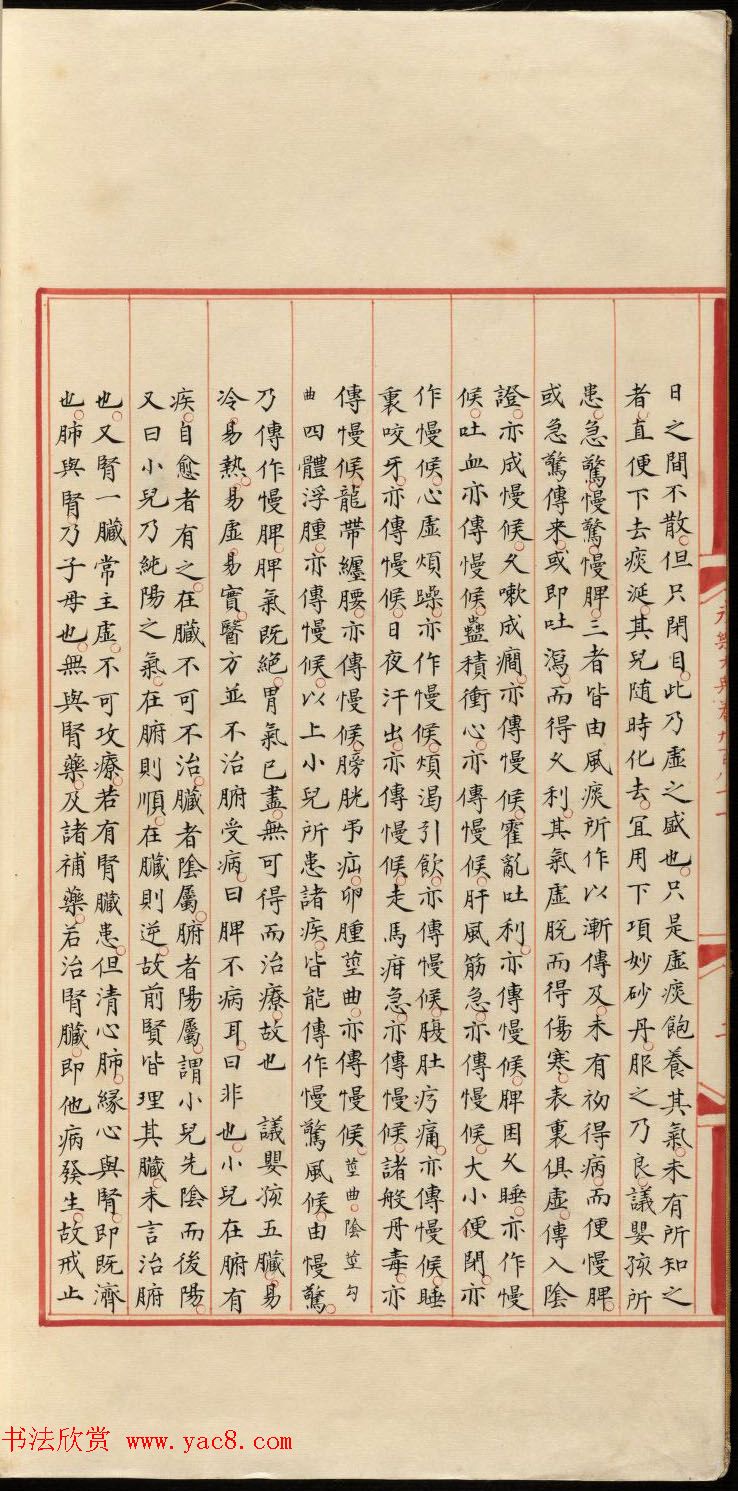 日之間不散但只閉目此乃虛之盛也只是虛痰飽養其氣未有所知之
者直便下去痰涎其兒隨時化去冝用下項妙砂丹服之乃良議嬰孩所
患急驚慢驚慢脾三者皆由風痰所作以漸傳及未有初得病而便慢脾
或急驚傳来或即吐瀉而得乆利其氣虛脱而得傷寒表裏俱虛傳入陰
證亦成慢候乆嗽成癎亦傳慢候霍亂吐利亦傳慢候脾困乆睡亦作慢
候吐血亦傳慢候蠱積衝心亦傳慢候肝風筋急亦傳慢候大小便閉亦
作慢候心虛煩躁亦作慢候煩渴引飲亦傳慢候腹肚疠痛亦傳慢候睡
裏咬牙亦傳慢候日夜汗出亦傳慢候走馬疳急亦傳慢候諸般丹毒亦
傳慢候龍帶纏腰亦傳慢候膀胱弔疝卵腫莖曲亦傳慢候莖曲陰莖勾
曲四體浮腫亦傳慢候以上小兒所患諸疾皆能傳作慢驚風候由慢驚
乃傳作慢脾脾氣既絶胃氣已盡無可得而治療故也 議嬰孩五臟易
冷易熱易虛易實醫方並不治腑受病曰脾不病耳曰非也小兒在腑有
疾自愈者有之在臟不可不治臟者陰屬腑者陽屬謂小兒先陰而後陽
又曰小兒乃純陽之氣在腑則順在臟則逆故前賢皆理其臟未言治腑
也又腎一臟常主虛不可攻療若有腎臟患但清心肺緣心與腎即既濟
也肺與腎乃子母也無與腎藥及諸補藥若治腎臟即他病發生故戒止
书法欣赏 www.yac8.com